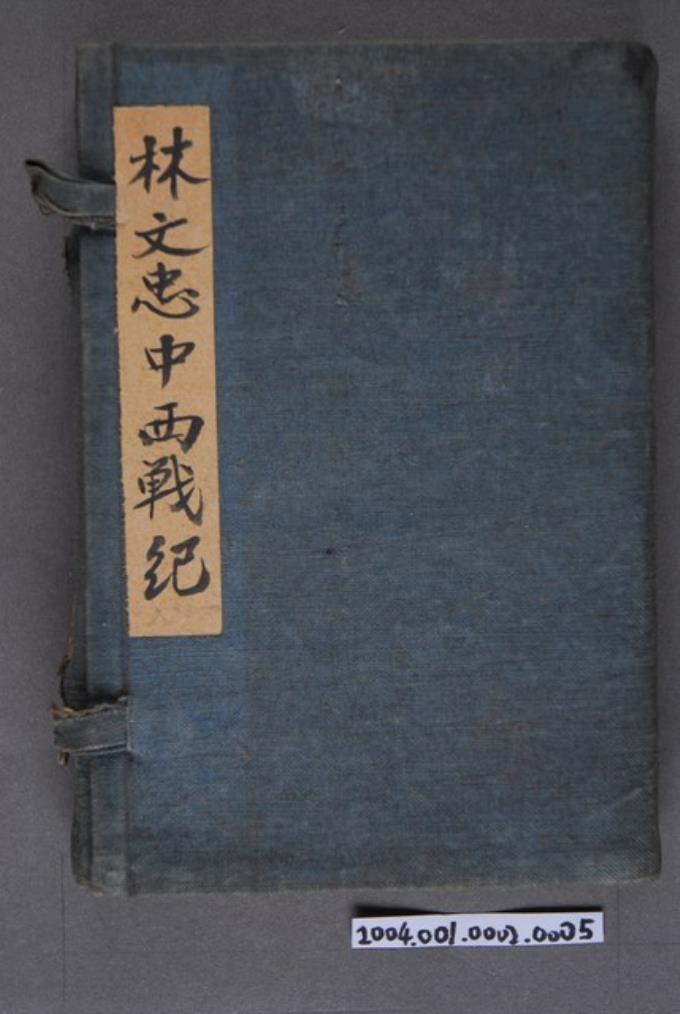 林文忠中西戦紀
2004.001.0002.0005